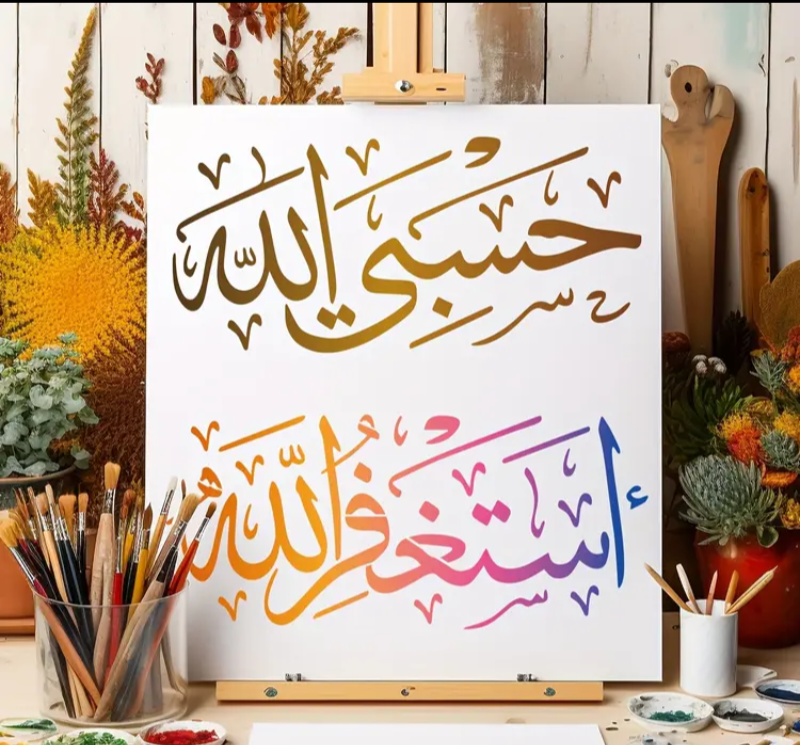 حسبي الله
أستغفر الله